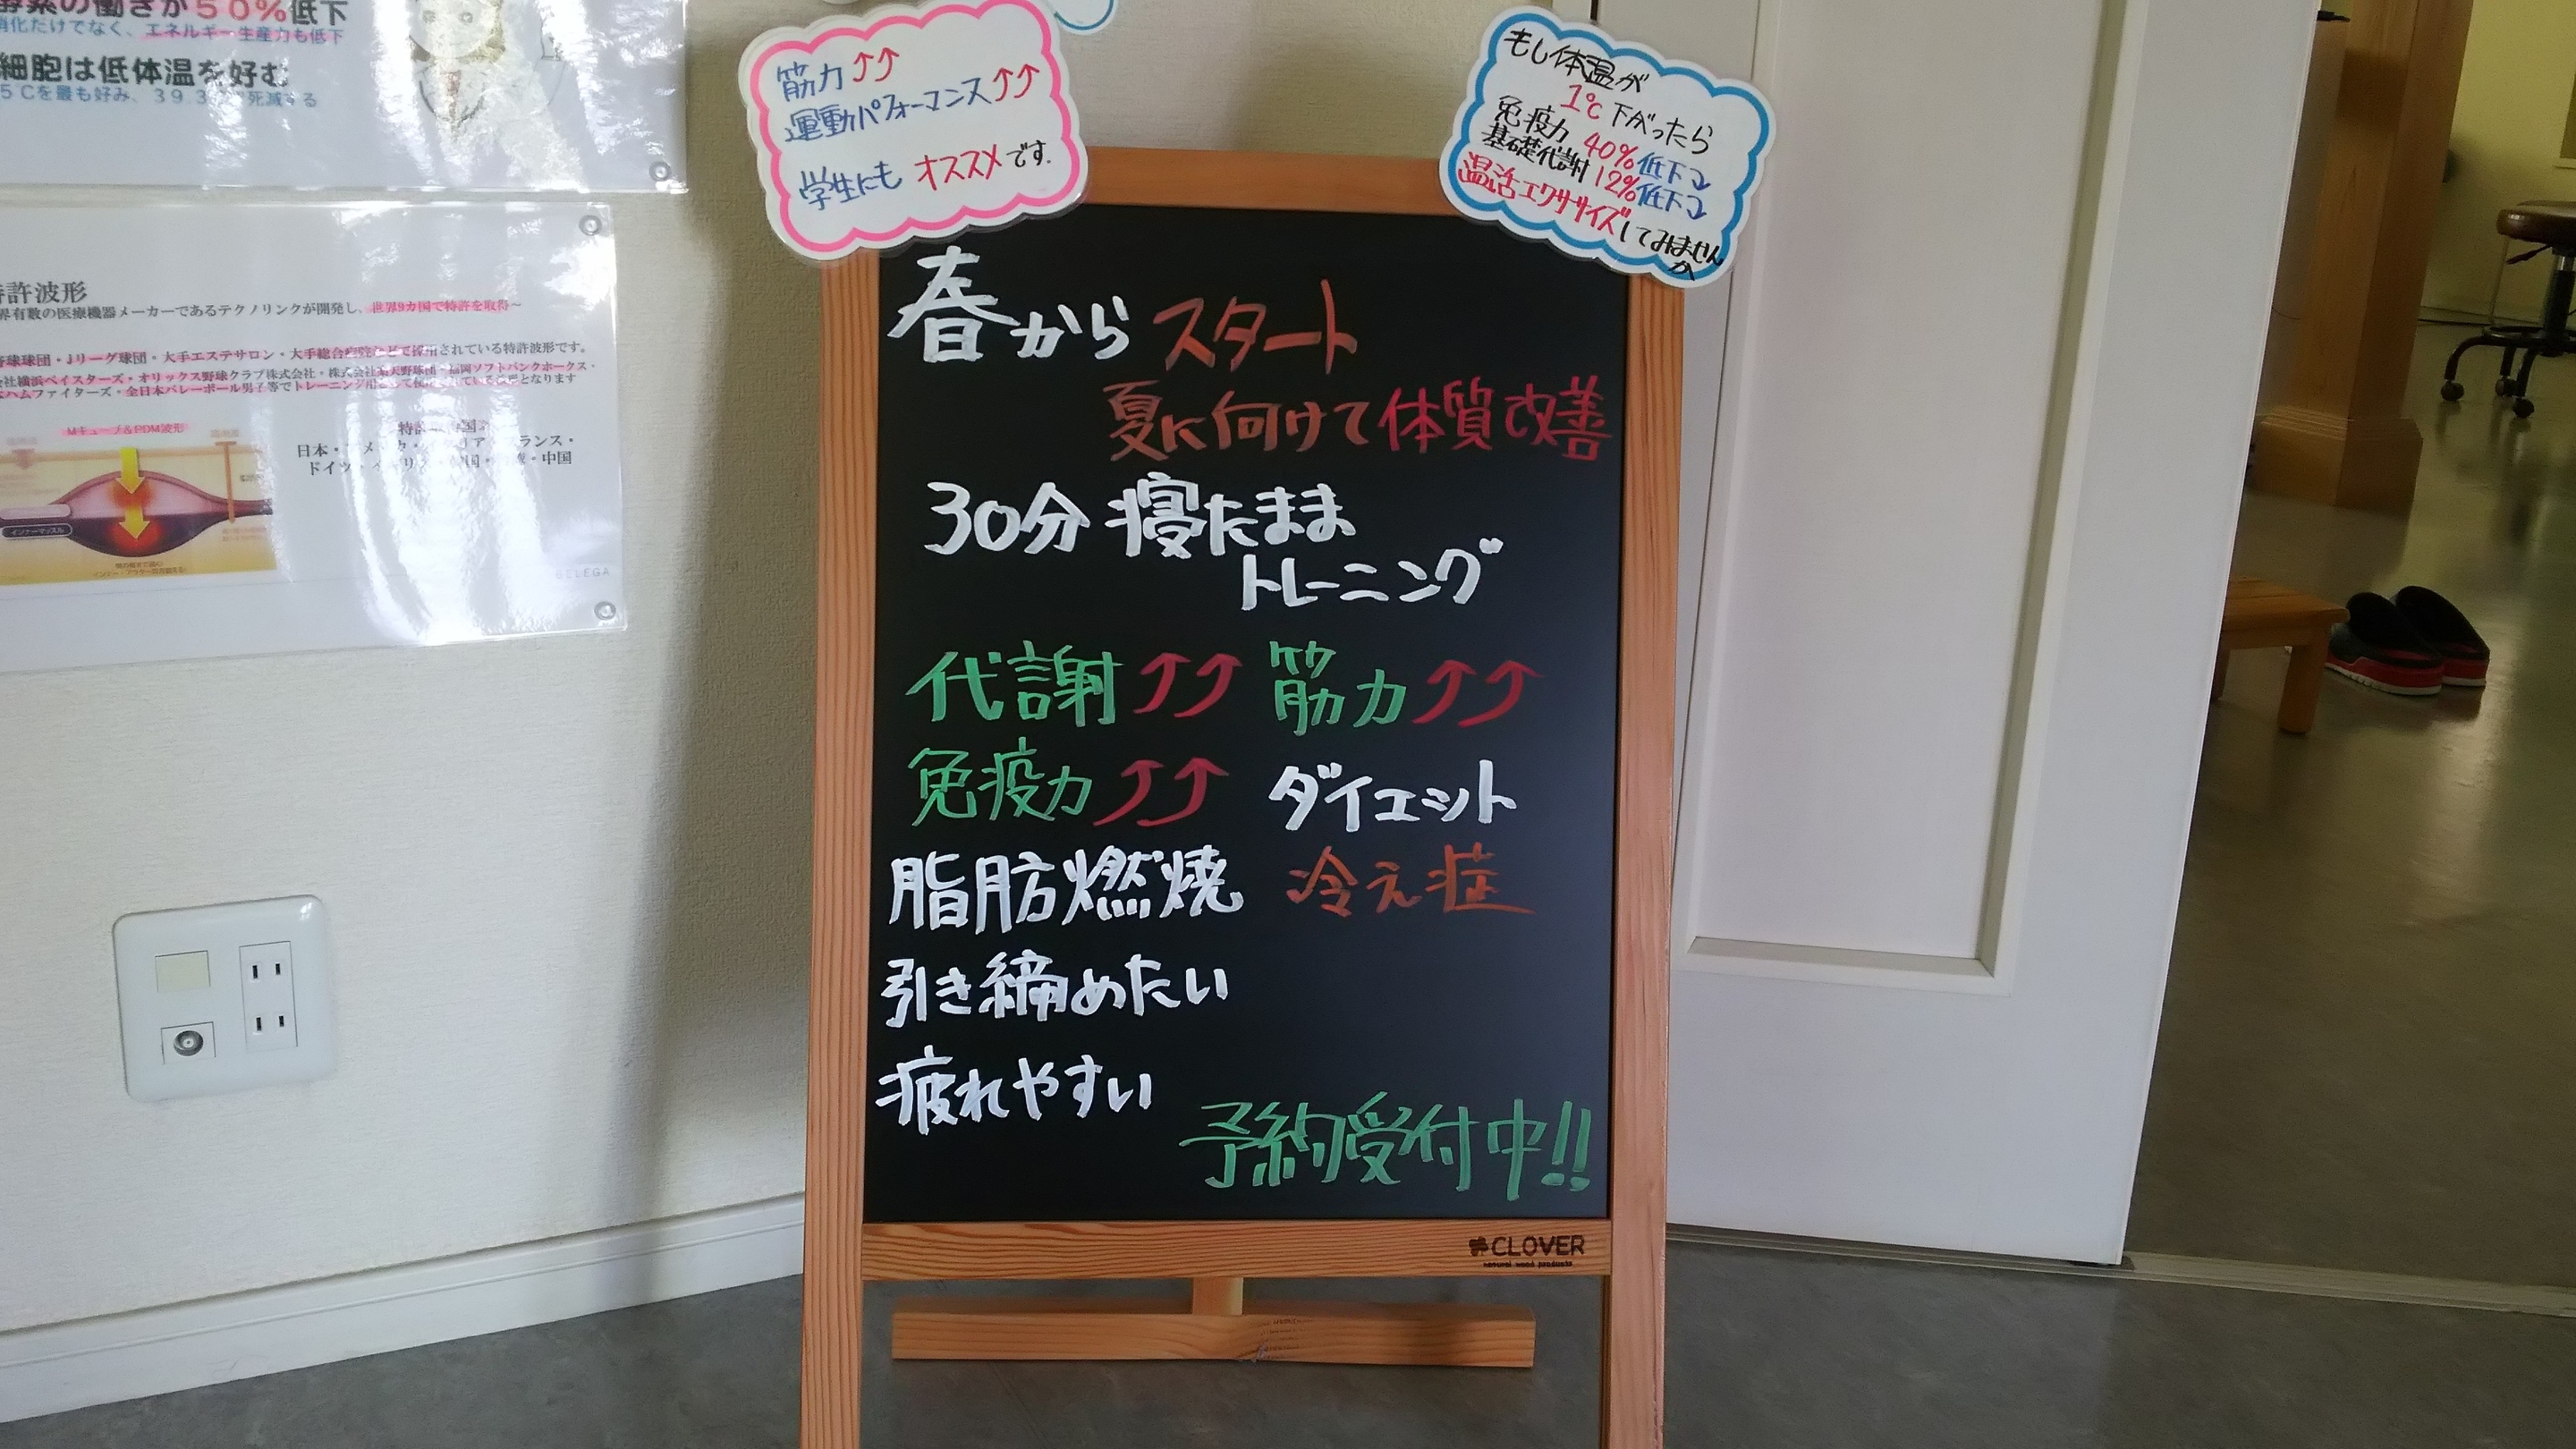 酵素の働きが50%低下
消化だけでなく、エネルギー生産力も低下
細胞は低体温を好む
5℃を最も好み、39.3 死滅する
特許波形
界有数の医療機器メーカーであるテクノリンクが開発し、世界9カ国で特許を取得～
野球球団・Jリーグ球団・大手エステサロン・大手総合病院などで採用されている特許波形です。
会社横浜ベイスターズ・オリックス野球クラブ株式会社・株式会社楽天野球団・福岡ソフトバンクホークス・
ハムファイターズ・全日本バレーボール男子等でトレーニング用として使用されている波形となります
Mキューブ&PDM波形
日本・
ランス・
ドイツ・
・中国
インナーマッスル
筋力⤴⤴
運動パフォーマンス⤴⤴
学生にもオススメです.
もし体温が
1℃下がったら
免疫力 40%低下⤵
基礎代謝 12%低下⤵
温活エクササイズしてみません
か
春からスタート
夏に向けて体質改善
30分 寝たまま
トレーニング
代謝⤴⤴ 筋力⤴⤴
免疫力⤴⤴ ダイエット
脂肪燃焼 冷え症
引き締めたい
疲れやすい
予約受付中!!
CLOVER
natural wood products